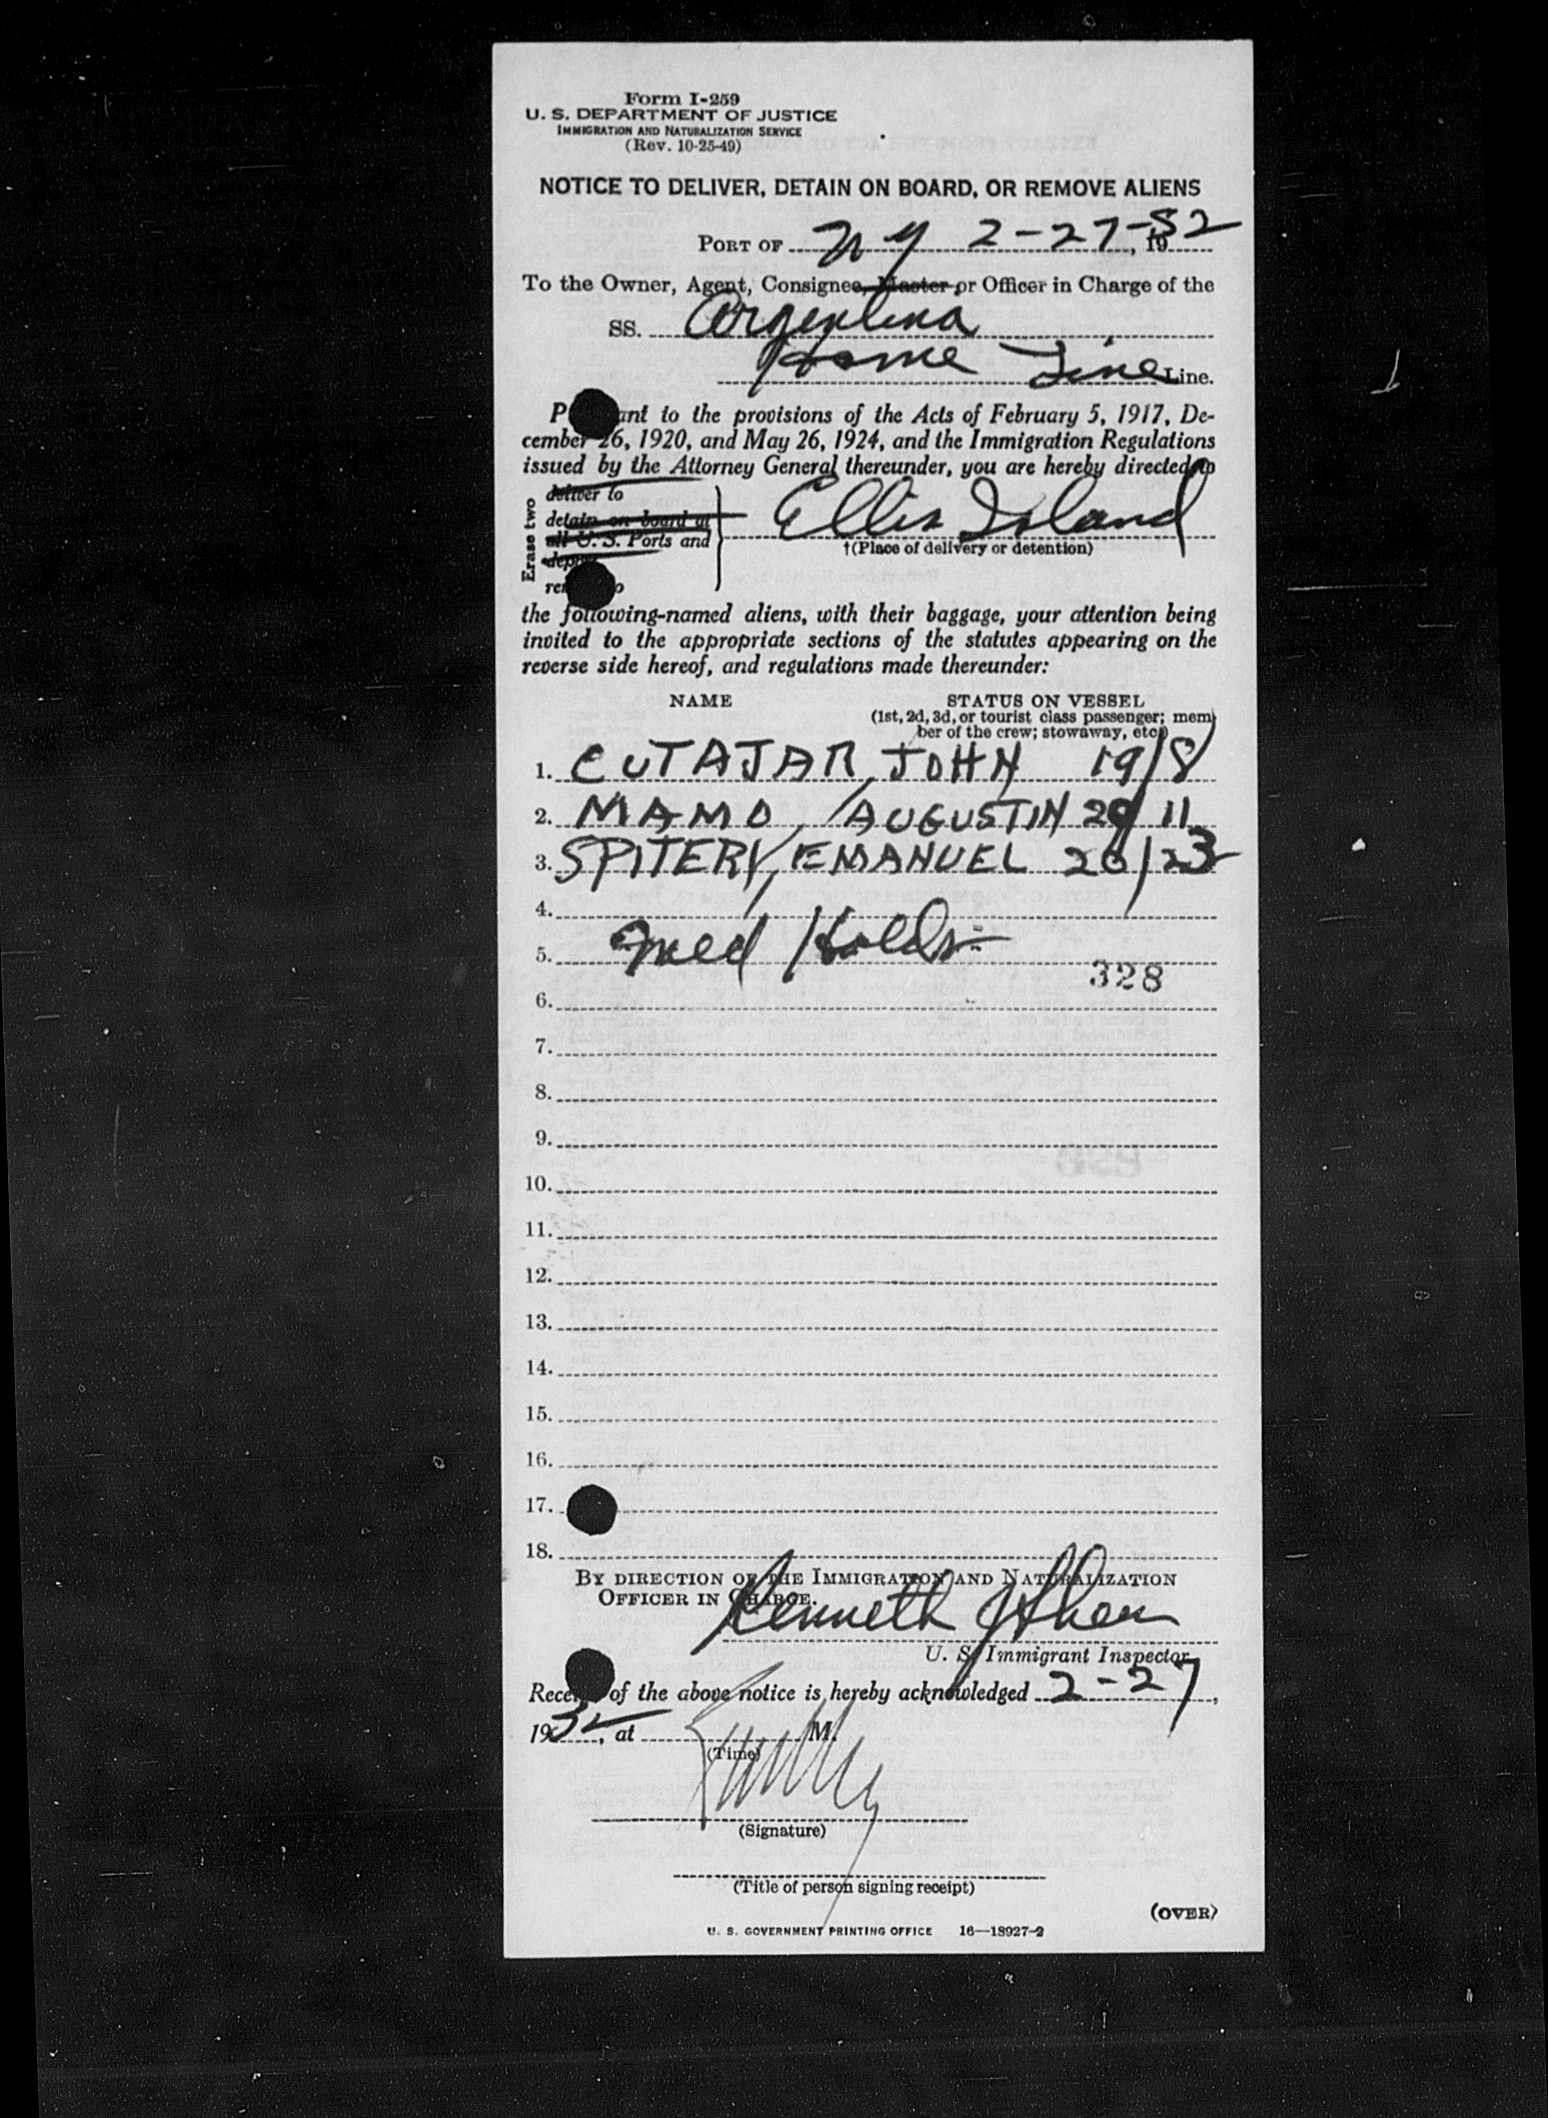 Form I-259
U. S. DEPARTMENT OF JUSTICE
IMMIGRATION AND NATURALIZATION SERVICE
(Rev. 10-25-49)
NOTICE TO DELIVER, DETAIN ON BOARD, OR REMOVE ALIENS
PORT OF NY 2-27-52, 19
To the Owner, Agent, Consignee, Master or Officer in Charge of the
SS. Argentina
Home Line Line.
P ant to the provisions of the Acts of February 5, 1917, De-
cember 26, 1920, and May 26, 1924, and the Immigration Regulations
issued by the Attorney General thereunder, you are hereby directed to
Erase two
deliver to
detain on board at
all U. S. Ports and
Ellis Island
†(Place of delivery or detention)
the following-named aliens, with their baggage, your attention being
invited to the appropriate sections of the statutes appearing on the
reverse side hereof, and regulations made thereunder:
NAME STATUS ON VESSEL
(1st, 2d, 3d, or tourist class passenger; mem-
ber of the crew; stowaway, etc.)
1. CUTAJAR, JOHN 19/8
2. MAMO, AUGUSTIN 20/11
3. SPITERY, EMANUEL 26/23
4.
5. Med Holds
328
6.
7.
8.
9.
10.
11.
12.
13.
14.
15.
16.
17.
18.
BY DIRECTION OF THE IMMIGRATION AND NATURALIZATION
OFFICER IN CHARGE.
Kenneth J Shea
U. S. Immigrant Inspector
Rece of the above notice is hereby acknowledged 2-27,
1952, at M.
(Time)
(Signature)
(Title of person signing receipt)
(OVER)
U. S. GOVERNMENT PRINTING OFFICE 16—18927-2